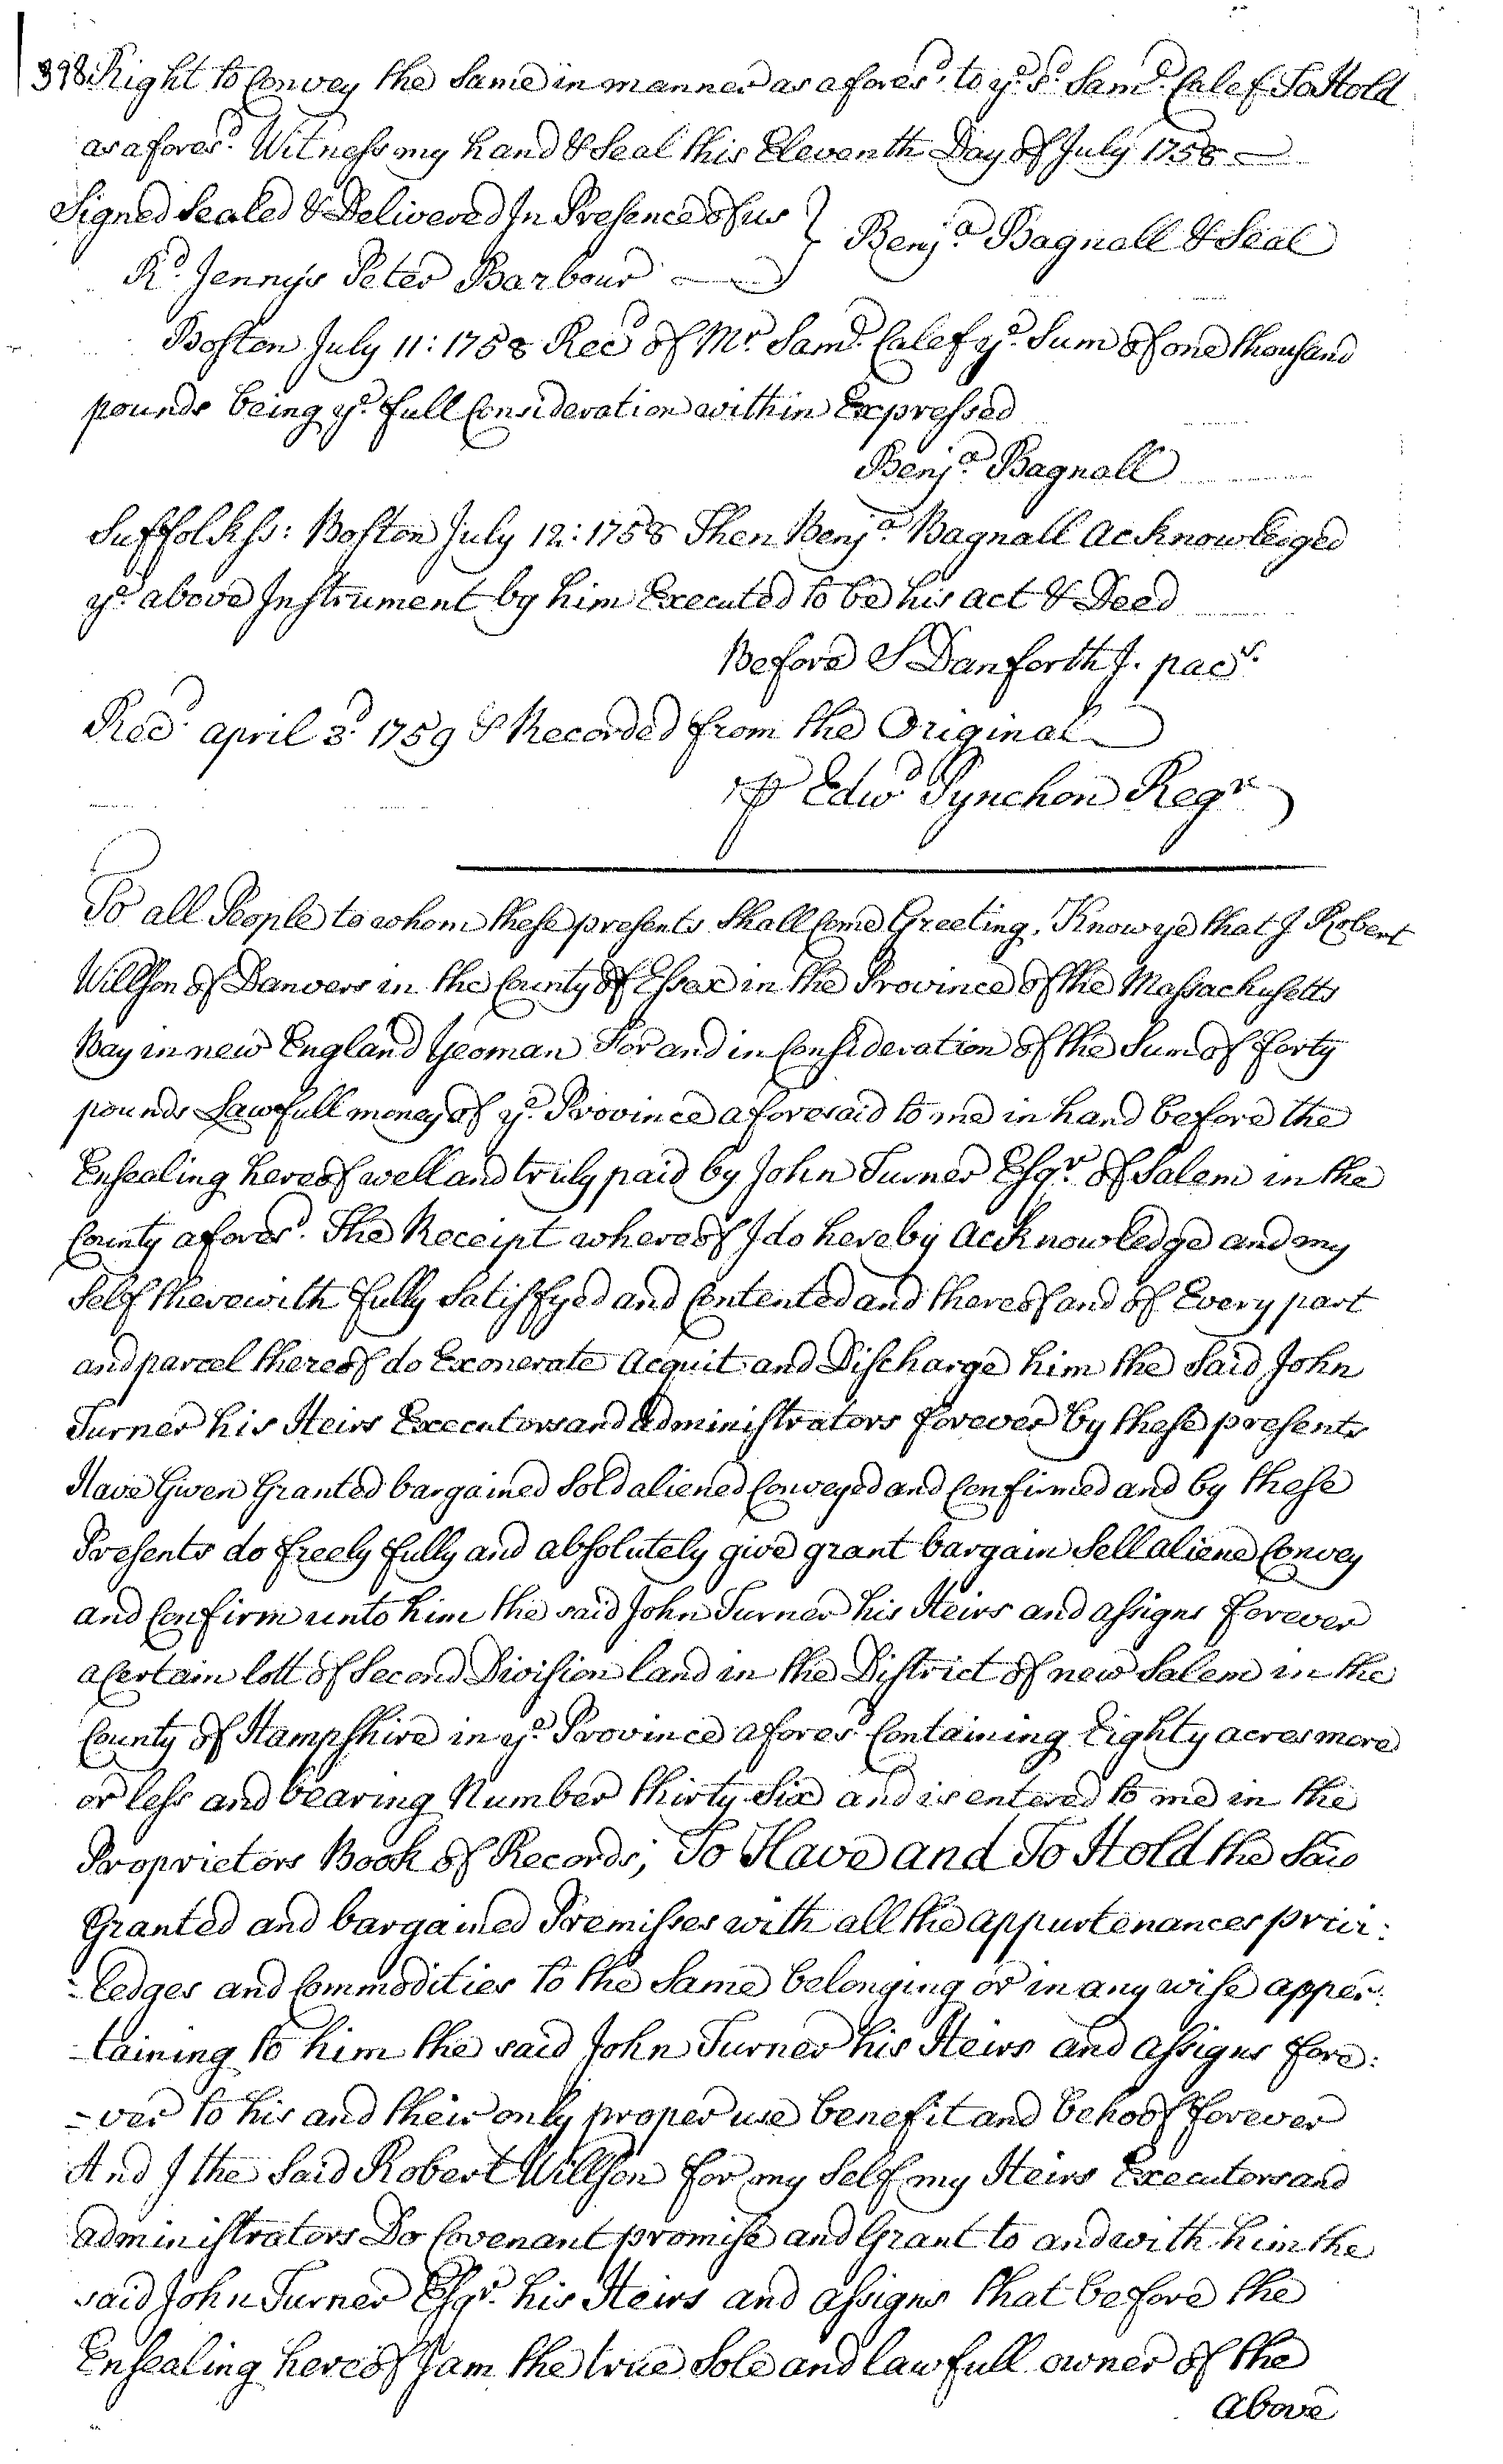 398 Right to Convey the Same in manner as afores.d to y.e s.d Sam.l Calef To Hold
as afores.d Witness my hand & Seal this Eleventh Day of July 1758
Signed Sealed & Delivered In Presence of us } Benj.a Bagnall & Seal
R.d Jennys Peter Barbour
Boston July 11: 1758 Rec.d of M.r Sam.l Calef y.e Sum of one thousand
pounds being y.e full Consideration within Expressed
Benj.a Bagnall
Suffolk ss: Boston July 12: 1758 Then Benj.a Bagnall Acknowledged
y.e above Instrument by him Executed to be his act & Deed
Before S Danforth J. pac.s
Rec.d april 3.d 1759 & Recorded from the Original
P Edw.d Pynchon Reg.r
To all People to whom these presents Shall Come Greeting, Know ye that I Robert
Willson of Danvers in the County of Essex in the Province of the Massachusetts
Bay in new England Yeoman For and in Consideration of the Sum of forty
pounds Lawfull money of y.e Province aforesaid to me in hand before the
Ensealing hereof well and truly paid by John Turner Esq.r of Salem in the
County afores.d The Receipt whereof I do hereby Acknowledge and my
Self therewith fully Satisfyed and Contented and thereof and of Every part
and parcel thereof do Exonerate Acquit and Discharge him the Said John
Turner his Heirs Executors and Administrators forever by these presents
Have Given Granted bargained Sold aliened Conveyed and Confirmed and by these
Presents do freely fully and absolutely give grant bargain Sell aliene Convey
and Confirm unto him the said John Turner his Heirs and assigns forever
a Certain lott of Second Division land in the District of new Salem in the
County of Hampshire in y.e Province afores.d Containing Eighty acres more
or less and bearing Number thirty Six and is entered to me in the
Proprietors Book of Records; To Have and To Hold the Said
Granted and bargained Premisses with all the appurtenances privi:
-ledges and Commodities to the Same belonging or in any wise apper:
-taining to him the said John Turner his Heirs and assigns fore:
-ver to his and their only proper use benefit and behoof forever
And I the Said Robert Willson for my Self my Heirs Executors and
administrators Do Covenant promise and Grant to and with him the
said John Turner Esq.r his Heirs and assigns that before the
Ensealing hereof I am the true Sole and lawfull owner of the
above